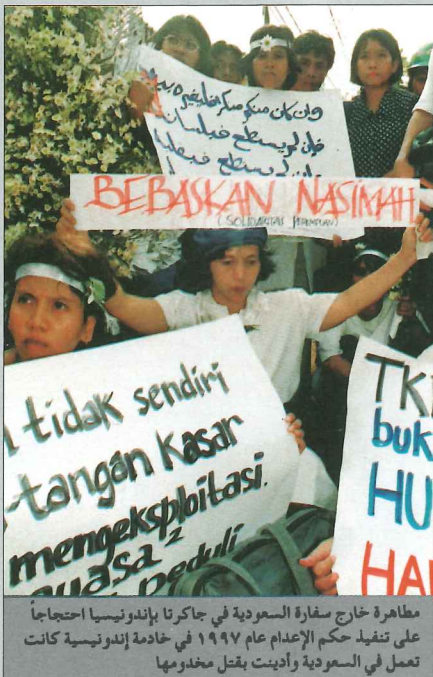 وإن كان منكم منكر فليغيره بيد
فإن لم يستطع فبلسان
وإن لم يستطع فبقلب
BEBASKAN NASIMAH
(SOLIDARITAS PEREMPUAN)
tidak sendiri
-tangan kasar
mengeksploitasi.
uasa²
peduli
TKI
buk
HU
HA
مظاهرة خارج سفارة السعودية في جاكرتا بإندونيسيا احتجاجاً
على تنفيذ حكم الإعدام عام ١٩٩٧ في خادمة إندونيسية كانت
تعمل في السعودية وأدينت بقتل مخدومها